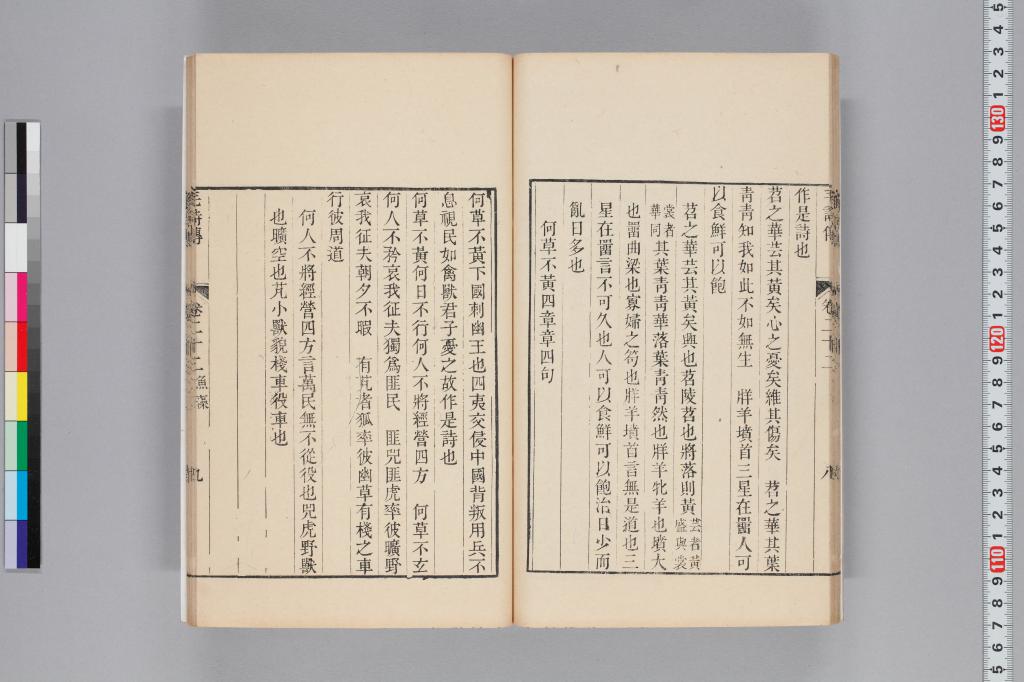 作是詩也
苕之華芸其黃矣心之憂矣維其傷矣　苕之華其葉
靑靑知我如此不如無生　牂羊墳首三星在罶人可
以食鮮可以飽
苕之華芸其黃矣興也苕陵苕也將落則黃芸者黃盛與裳
裳者華同其葉靑靑華落葉靑靑然也牂羊牝羊也墳大
也罶曲梁也寡婦之笱也牂羊墳首言無是道也三
星在罶言不可久也人可以食鮮可以飽治日少而
亂日多也
何草不黃四章章四句
卷二十二
八
何草不黃下國刺幽王也四夷交侵中國背叛用兵不
息視民如禽獸君子憂之故作是詩也
何草不黃何日不行何人不將經營四方　何草不玄
何人不矜哀我征夫獨爲匪民　匪兕匪虎率彼曠野
哀我征夫朝夕不暇　有芃者狐率彼幽草有棧之車
行彼周道
何人不將經營四方言萬民無不從役也兕虎野獸
也曠空也芃小獸貌棧車役車也
毛詩傳
卷二十二
魚藻
九
130
120
110